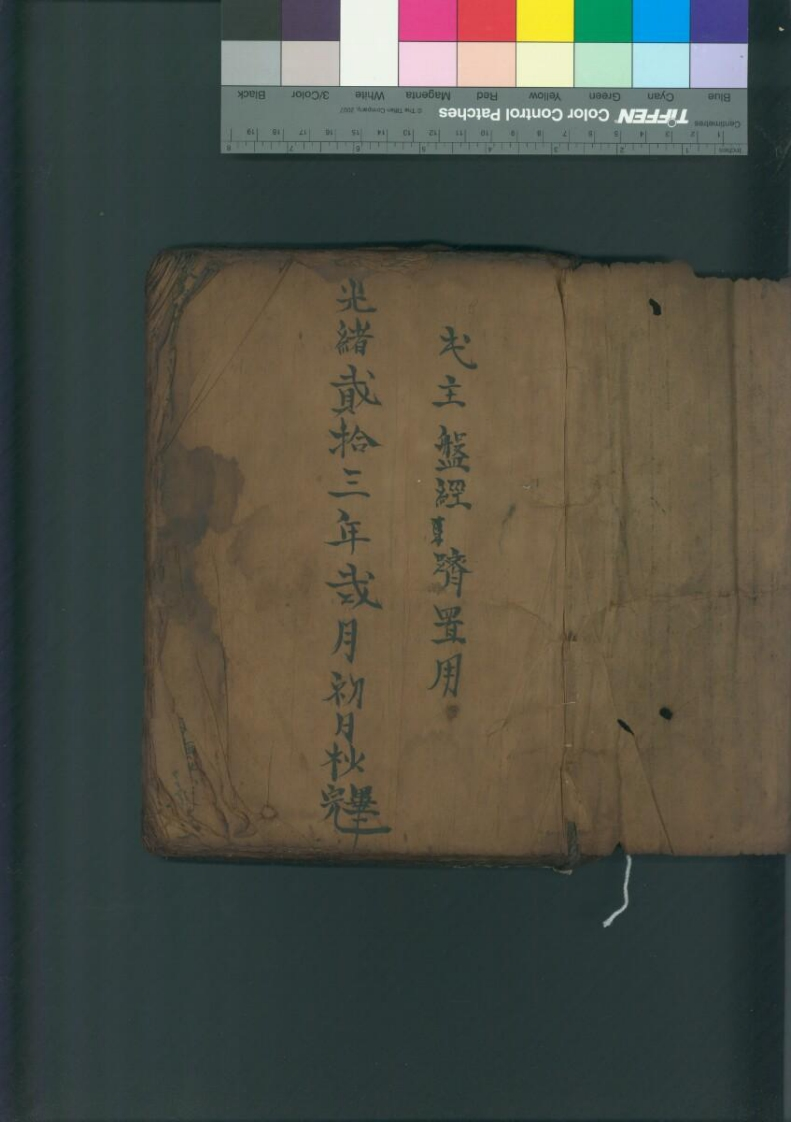 主盤經齊置用
光緒貳拾三年貳月初月秋完畢
Blue Cyan Green Yellow Red Magenta White 3/Color Black
Centimetres TIFFEN Color Control Patches © The Tiffen Company, 2007
1 2 3 4 5 6 7 8 9 10 11 12 13 14 15 16 17 18 19
Inches 1 2 3 4 5 6 7 8